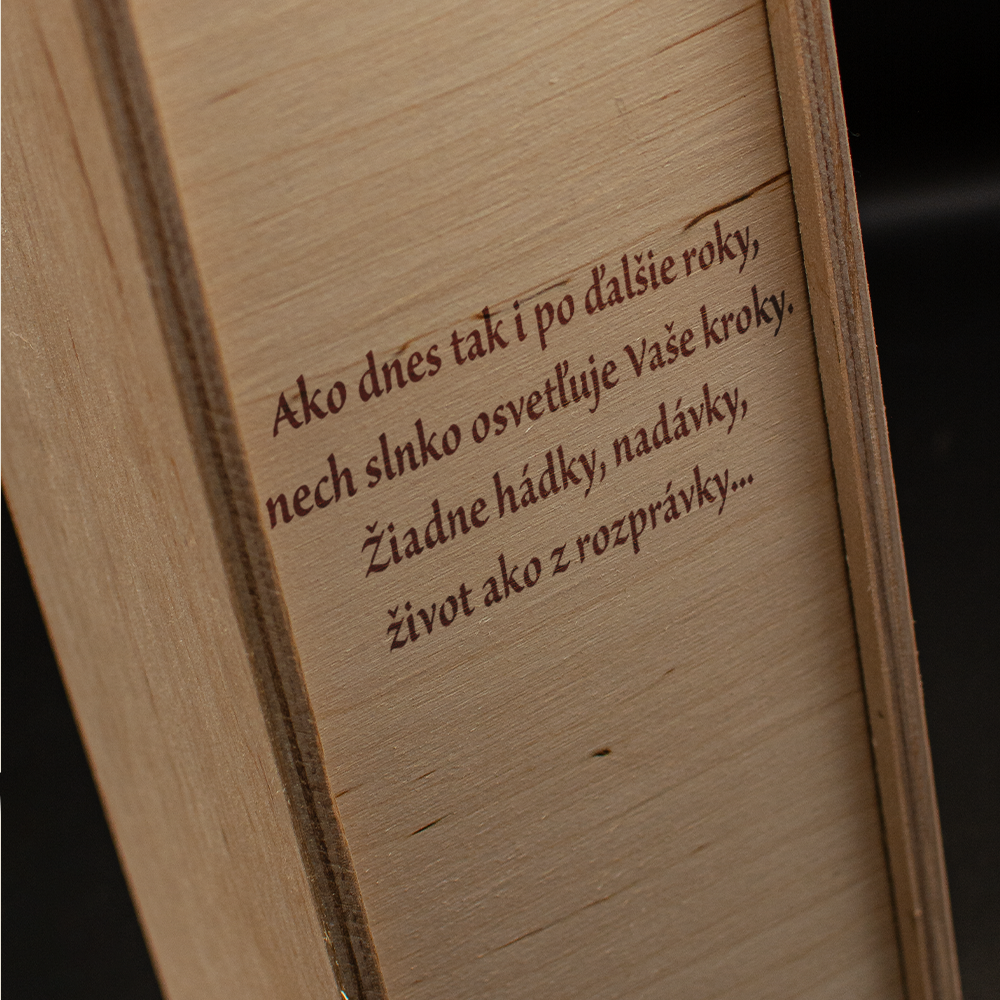 Ako dnes tak i po ďalšie roky,
nech slnko osvetľuje Vaše kroky.
Žiadne hádky, nadávky,
život ako z rozprávky...